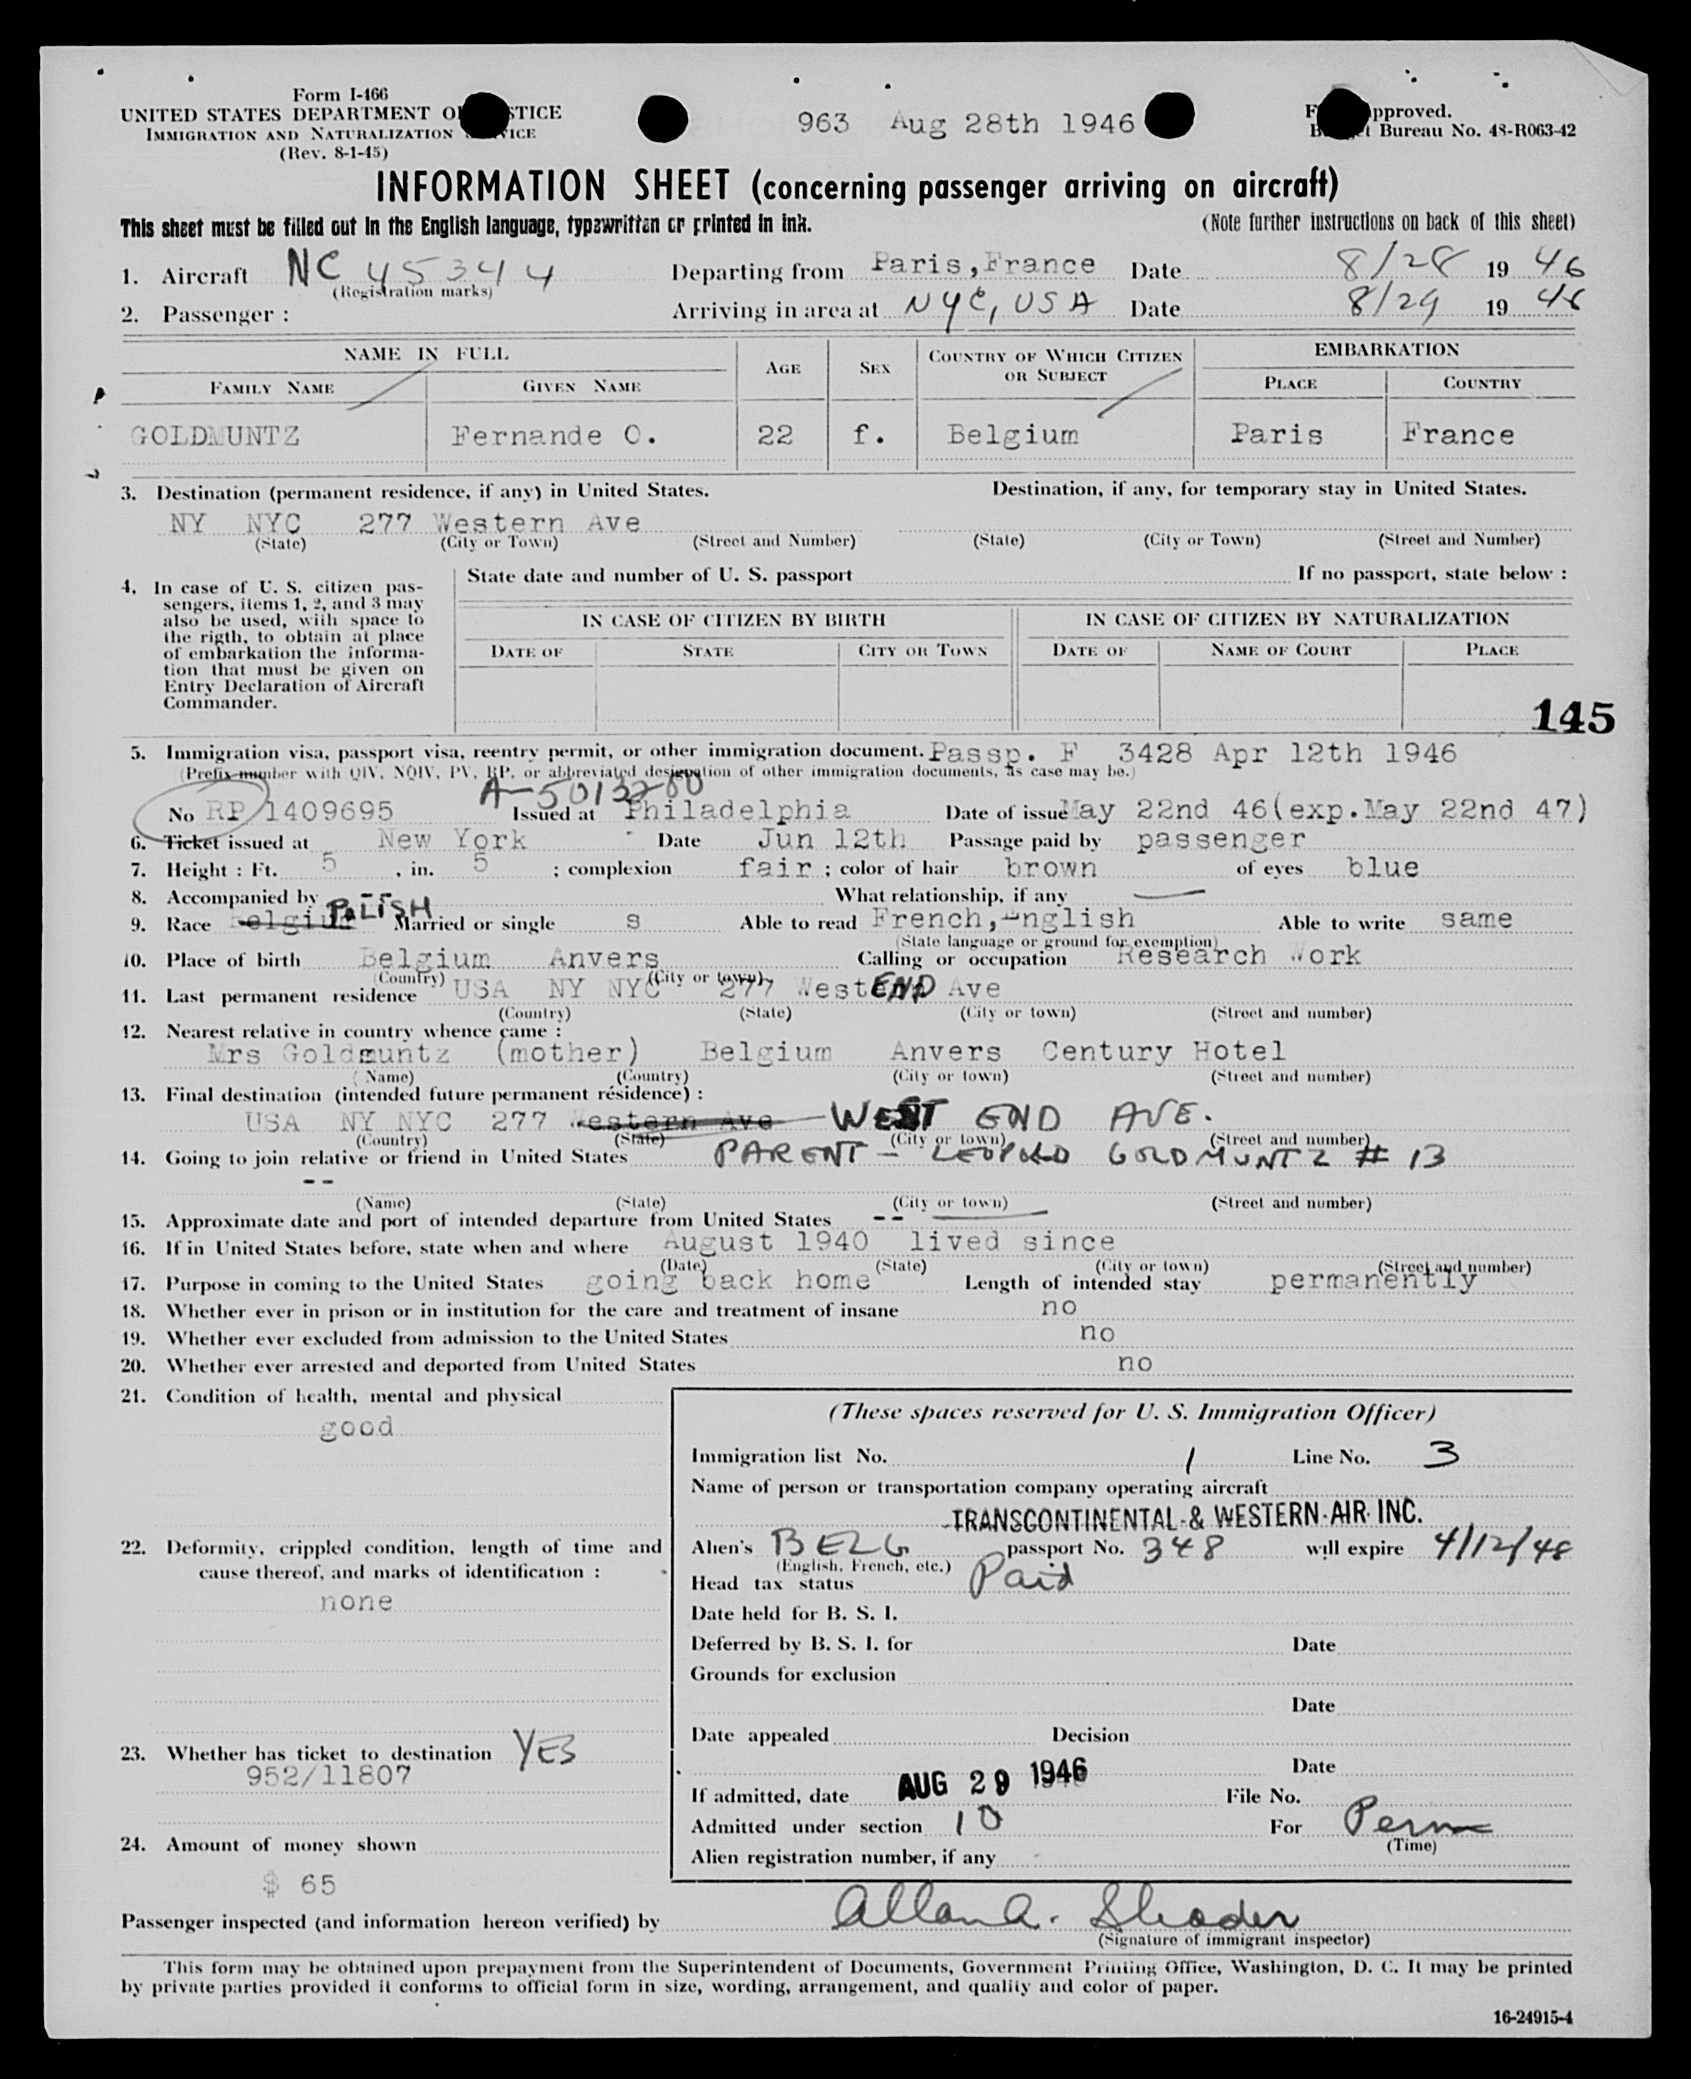 Form I-466
UNITED STATES DEPARTMENT OF JUSTICE
IMMIGRATION AND NATURALIZATION SERVICE
(Rev. 8-1-45)
963 Aug 28th 1946
Form approved.
Budget Bureau No. 43-R063-42
INFORMATION SHEET (concerning passenger arriving on aircraft)
This sheet must be filled out in the English language, typewritten or printed in ink. (Note further instructions on back of this sheet)
1. Aircraft NC 45344 Departing from Paris, France Date 8/28 19 46
(Registration marks)
2. Passenger : Arriving in area at NYC, USA Date 8/29 19 46
NAME IN FULL AGE SEX COUNTRY OF WHICH CITIZEN OR SUBJECT EMBARKATION
FAMILY NAME GIVEN NAME PLACE COUNTRY
GOLDMUNTZ Fernande O. 22 f. Belgium Paris France
3. Destination (permanent residence, if any) in United States. Destination, if any, for temporary stay in United States.
NY NYC 277 Western Ave
(State) (City or Town) (Street and Number) (State) (City or Town) (Street and Number)
4. In case of U. S. citizen pas-
sengers, items 1, 2, and 3 may
also be used, with space to
the rigth, to obtain at place
of embarkation the informa-
tion that must be given on
Entry Declaration of Aircraft
Commander.
State date and number of U. S. passport If no passport, state below :
IN CASE OF CITIZEN BY BIRTH IN CASE OF CITIZEN BY NATURALIZATION
DATE OF STATE CITY OR TOWN DATE OF NAME OF COURT PLACE
145
5. Immigration visa, passport visa, reentry permit, or other immigration document. Passp. F 3428 Apr 12th 1946
(Prefix number with QIV, NQIV, PV, RP, or abbreviated designation of other immigration documents, as case may be.)
A-5013280
No RP 1409695 Issued at Philadelphia Date of issue May 22nd 46(exp.May 22nd 47)
6. Ticket issued at New York Date Jun 12th Passage paid by passenger
7. Height : Ft. 5 , in. 5 ; complexion fair ; color of hair brown of eyes blue
8. Accompanied by -- What relationship, if any
9. Race Belgium POLISH Married or single s Able to read French, English Able to write same
(State language or ground for exemption)
10. Place of birth Belgium Anvers Calling or occupation Research Work
(Country) (City or town)
11. Last permanent residence USA NY NYC 277 Western END Ave
(Country) (State) (City or town) (Street and number)
12. Nearest relative in country whence came :
Mrs Goldmuntz (mother) Belgium Anvers Century Hotel
(Name) (Country) (City or town) (Street and number)
13. Final destination (intended future permanent résidence) :
USA NY NYC 277 Western Ave WEST END AVE.
(Country) (State) (City or town) (Street and number)
14. Going to join relative or friend in United States PARENT - LEOPOLD GOLDMUNTZ # 13
--
(Name) (State) (City or town) (Street and number)
15. Approximate date and port of intended departure from United States --
16. If in United States before, state when and where August 1940 lived since
(Date) (State) (City or town) (Street and number)
17. Purpose in coming to the United States going back home Length of intended stay permanently
18. Whether ever in prison or in institution for the care and treatment of insane no
19. Whether ever excluded from admission to the United States no
20. Whether ever arrested and deported from United States no
21. Condition of health, mental and physical
good
22. Deformity, crippled condition, length of time and
cause thereof, and marks of identification :
none
23. Whether has ticket to destination YES
952/11807
24. Amount of money shown
$ 65
(These spaces reserved for U. S. Immigration Officer)
Immigration list No. 1 Line No. 3
Name of person or transportation company operating aircraft
TRANSCONTINENTAL & WESTERN AIR INC.
Alien's BELG passport No. 348 will expire 4/12/48
(English, French, etc.)
Head tax status Paid
Date held for B. S. I.
Deferred by B. S. I. for Date
Grounds for exclusion
Date
Date appealed Decision
Date
If admitted, date AUG 29 1946 File No.
Admitted under section 10 For Perm
(Time)
Alien registration number, if any
Passenger inspected (and information hereon verified) by Allan A. Shader
(Signature of immigrant inspector)
This form may be obtained upon prepayment from the Superintendent of Documents, Government Printing Office, Washington, D. C. It may be printed
by private parties provided it conforms to official form in size, wording, arrangement, and quality and color of paper.
16-24915-4